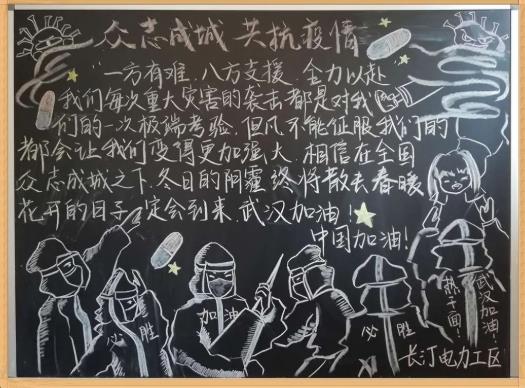 众志成城 共抗疫情
“一方有难，八方支援，全力以赴”
我们每次重大灾害的袭击都是对我
们的一次极端考验，但凡不能征服我们的
都会让我们变得更加强大，相信在全国
众志成城之下，冬日的阴霾终将散去，春暖
花开的日子一定会到来，武汉加油！
中国加油！
加油
必 胜
必 胜
热干面！
武汉加油！
长汀电力工区